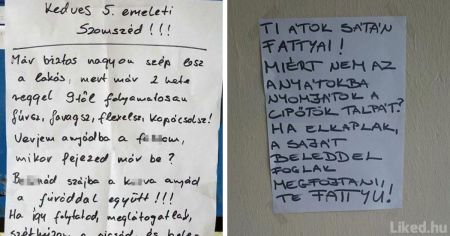 Kedves 5. emeleti
Szomszéd!!!
Már biztos nagyon szép lesz
a lakás, mert már 2 hete
reggel 9től folyamatosan
fúrsz, faragsz, flexelsz, kopácsolsz!
Verjem anyádba a f
mikor fejezed már be?
szájba a k anyád
a fúróddal együtt!!!
Ha így folytatod, meglátogatlak,
TI ÁTOK SÁTÁN
FATTYAI!
MIÉRT NEM AZ
ANYÁTOKBA
NYOMJÁTOK A
CIPŐTÖK TALPÁT?
HA ELKAPLAK,
A SAJÁT
BELEDDEL
FOGLAK
MEGFOJTANI,
TE FATTYU!
Liked.hu